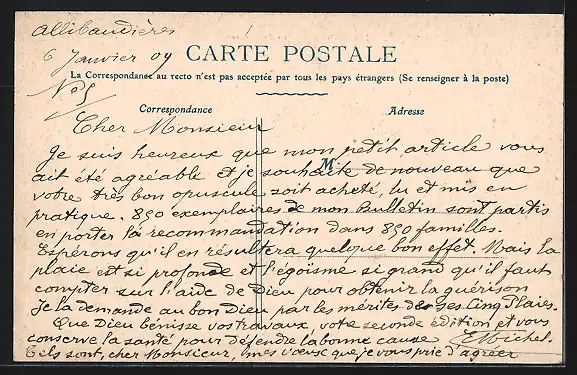 Allibaudières
6 Janvier 09
CARTE POSTALE
La Correspondance au recto n'est pas acceptée par tous les pays étrangers (Se renseigner à la poste)
N° 5
Correspondance
Adresse
Cher Monsieur
M
Je suis heureux que mon petit article vous
ait été agréable et je souhaite de nouveau que
votre très bon opuscule soit acheté, lu et mis en
pratique. 850 exemplaires de mon Bulletin sont partis
en porter la recommandation dans 850 familles.
Espérons qu'il en résultera quelque bon effet. Mais la
plaie est si profonde et l'égoïsme si grand qu'il faut
compter sur l'aide de Dieu pour obtenir la guérison
Je la demande au bon Dieu par les mérites de ses Cinq Plaies.
Que Dieu bénisse vos travaux, votre seconde édition et vous
conserve la santé pour défendre la bonne cause E Michel
Tels sont, cher Monsieur, mes vœux que je vous prie d'agréer